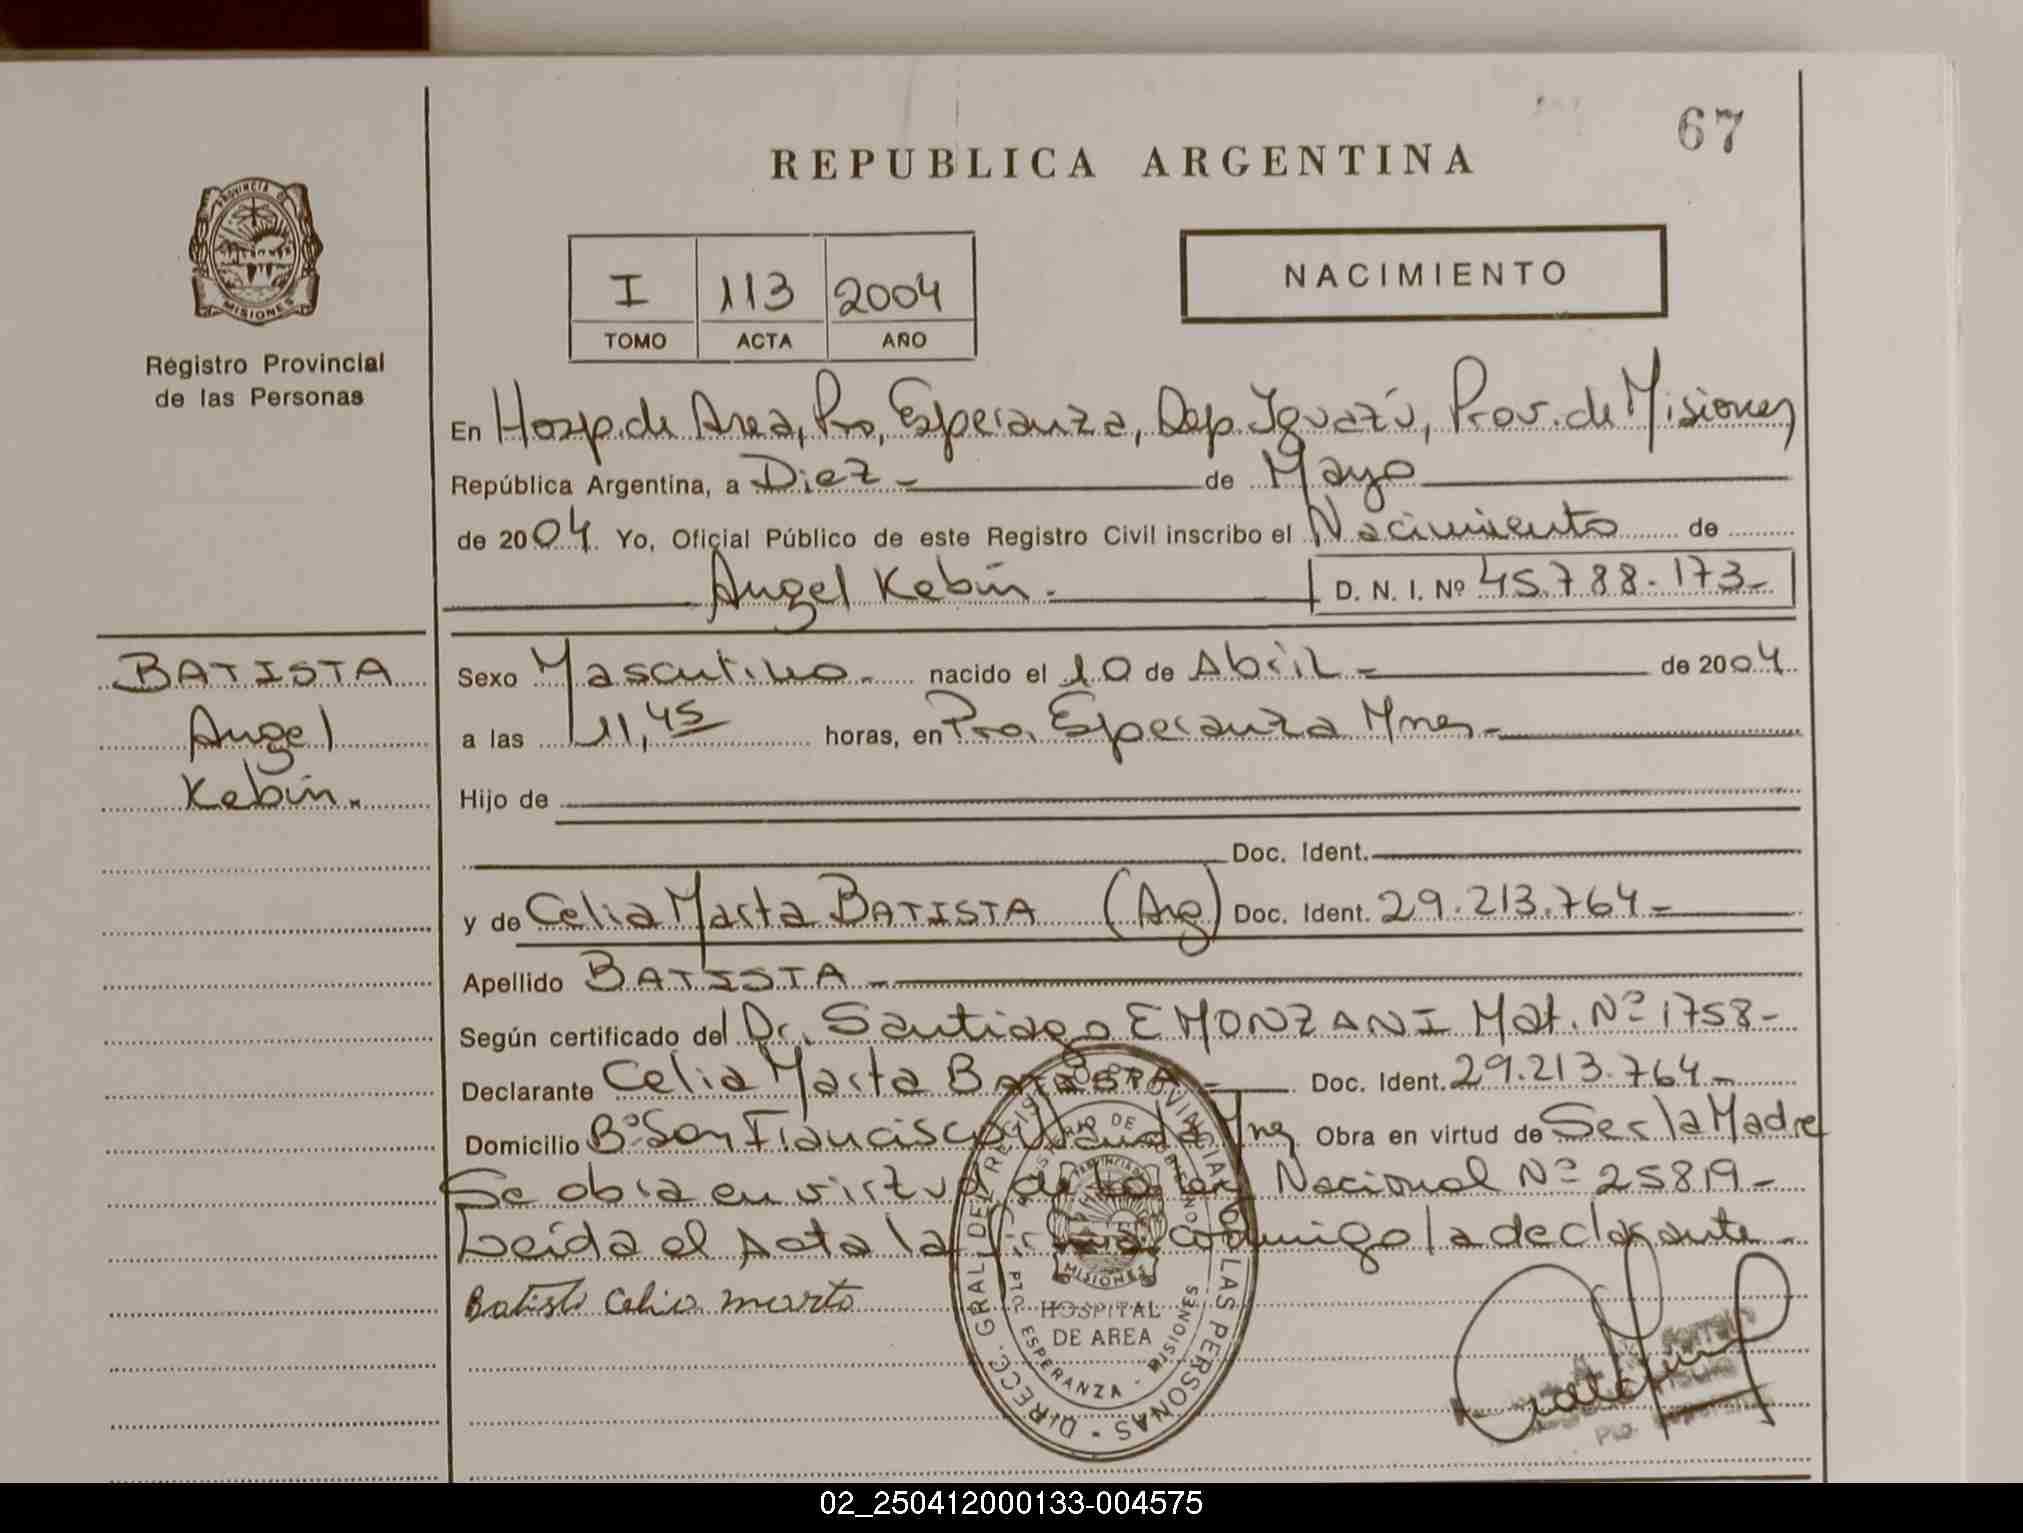 67
REPUBLICA ARGENTINA
PROVINCIA DE
MISIONES
Registro Provincial
de las Personas
I 113 2004
TOMO ACTA AÑO
NACIMIENTO
En Hosp. de Area, Pto, Esperanza, Dep. Iguazú, Prov. de Misiones
República Argentina, a Diez - de Mayo
de 2004. Yo, Oficial Público de este Registro Civil inscribo el Nacimiento de
Angel Kebin. D. N. I. Nº 45.788.173-
BATISTA
Angel
Kebin.
Sexo Masculino - nacido el 10 de Abril - de 2004
a las 11,45 horas, en Pto. Esperanza Mnes -
Hijo de
Doc. Ident.
y de Celia Marta BATISTA (Arg) Doc. Ident. 29.213.764 -
Apellido BATISTA -
Según certificado del Dr. Santiago E MONZANI Mat. Nº 1758 -
Declarante Celia Marta BATISTA - Doc. Ident. 29.213.764 -
Domicilio Bº San Francisco Wanda Mnes Obra en virtud de Ser la Madre
Se obra en virtud de la Ley Nacional Nº 25819 -
Leida el Acta la firma conmigo la declarante -
Batista Celia marta
DIRECC. GRAL DEL REGISTRO PROVINCIAL DE LAS PERSONAS -
MINISTERIO DE GOBIERNO
PROVINCIA DE
MISIONES
HOSPITAL
DE AREA
PTO. ESPERANZA - MISIONES
Pto.
02_250412000133-004575